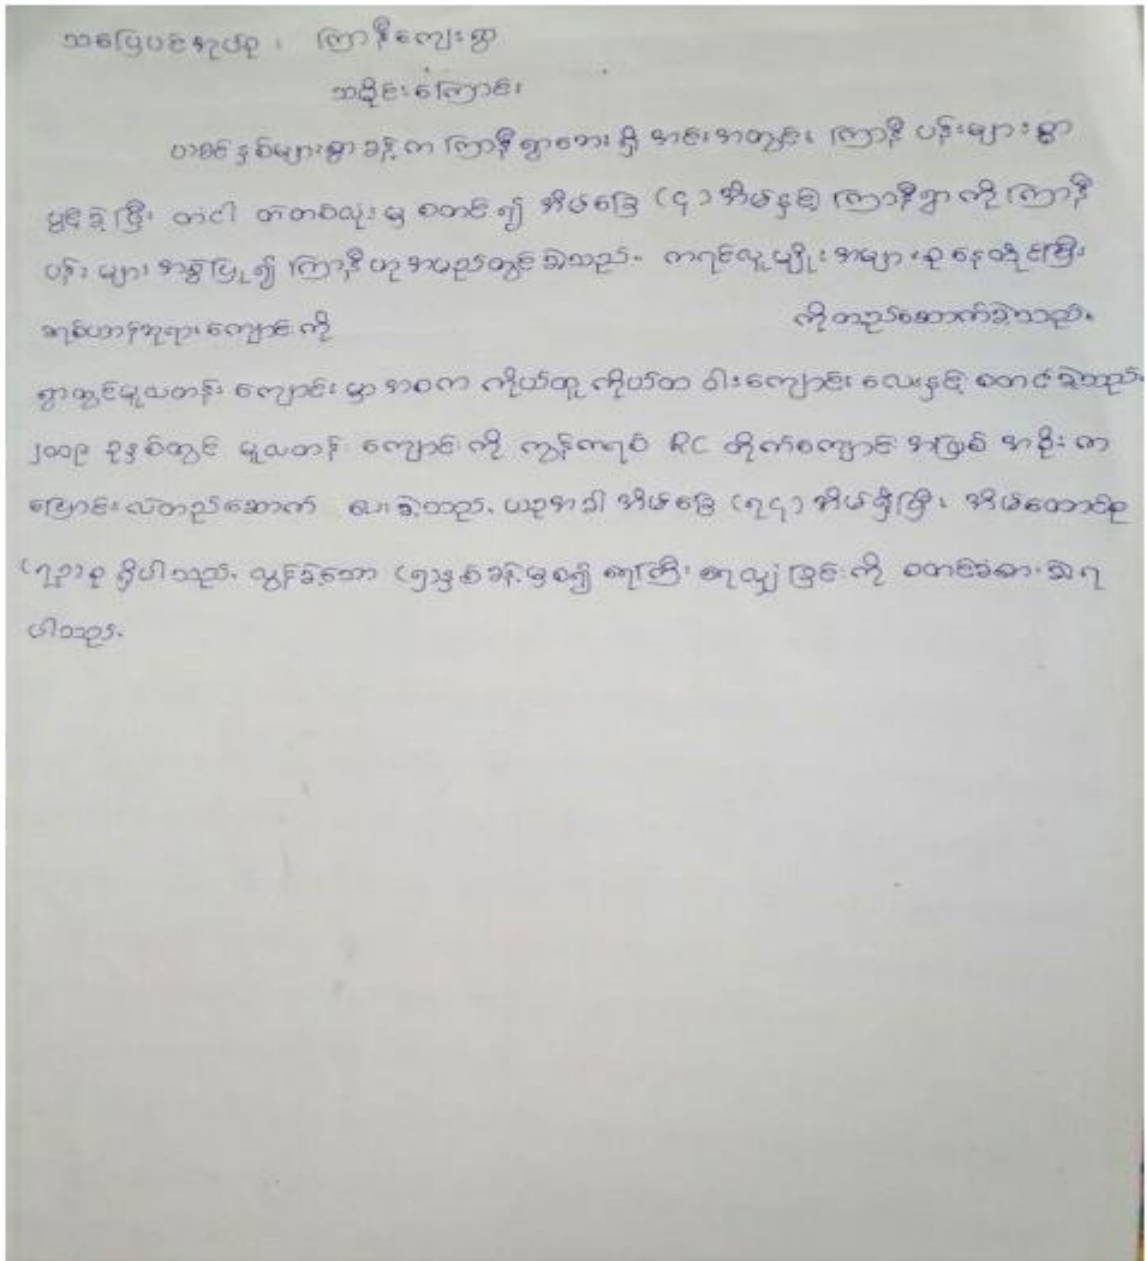 သပြေပင်အုပ်စု ၊ ကြာနီကျေးရွာ
သမိုင်းကြောင်း
ယခင်နှစ်များစွာခန့်က ကြာနီရွာဘေးရှိ အင်းအတွင်း ကြာနီ ပန်းများစွာ
ပွင့်ခဲ့ပြီး တံငါ တဲတစ်လုံးမှ စတင်၍ အိမ်ခြေ (၄) အိမ်နှင့် ကြာနီရွာကို ကြာနီ
ပန်းများ အစွဲပြု၍ ကြာနီဟုအမည်တွင်ခဲ့သည်။ ကရင်လူမျိုး အများစုနေထိုင်ပြီး
ခရစ်ယာန်ဘုရားကျောင်းကို ကိုတည်ဆောက်ခဲ့သည်။
ရွာတွင်မူလတန်းကျောင်းမှာ အစက ကိုယ်ထူကိုယ်ထ ဝါးကျောင်းလေးနှင့် စတင်ခဲ့သည်။
၂၀၀၉ ခုနှစ်တွင် မူလတန်းကျောင်းကို ကွန်ကရစ် RC တိုက်ကျောင်းအဖြစ် အစိုးရက
ပြောင်းလဲတည်ဆောက် ပေးခဲ့သည်။ ယခုအခါ အိမ်ခြေ (၇၄) အိမ်ရှိပြီး အိမ်ထောင်စု
စု ရှိပါသည်။ လွန်ခဲ့သော (၅)နှစ်ခန့်မှစ၍ ရေကြီး ရေလျှံခြင်းကို စတင်ခံစားခဲ့ရ
ပါသည်။